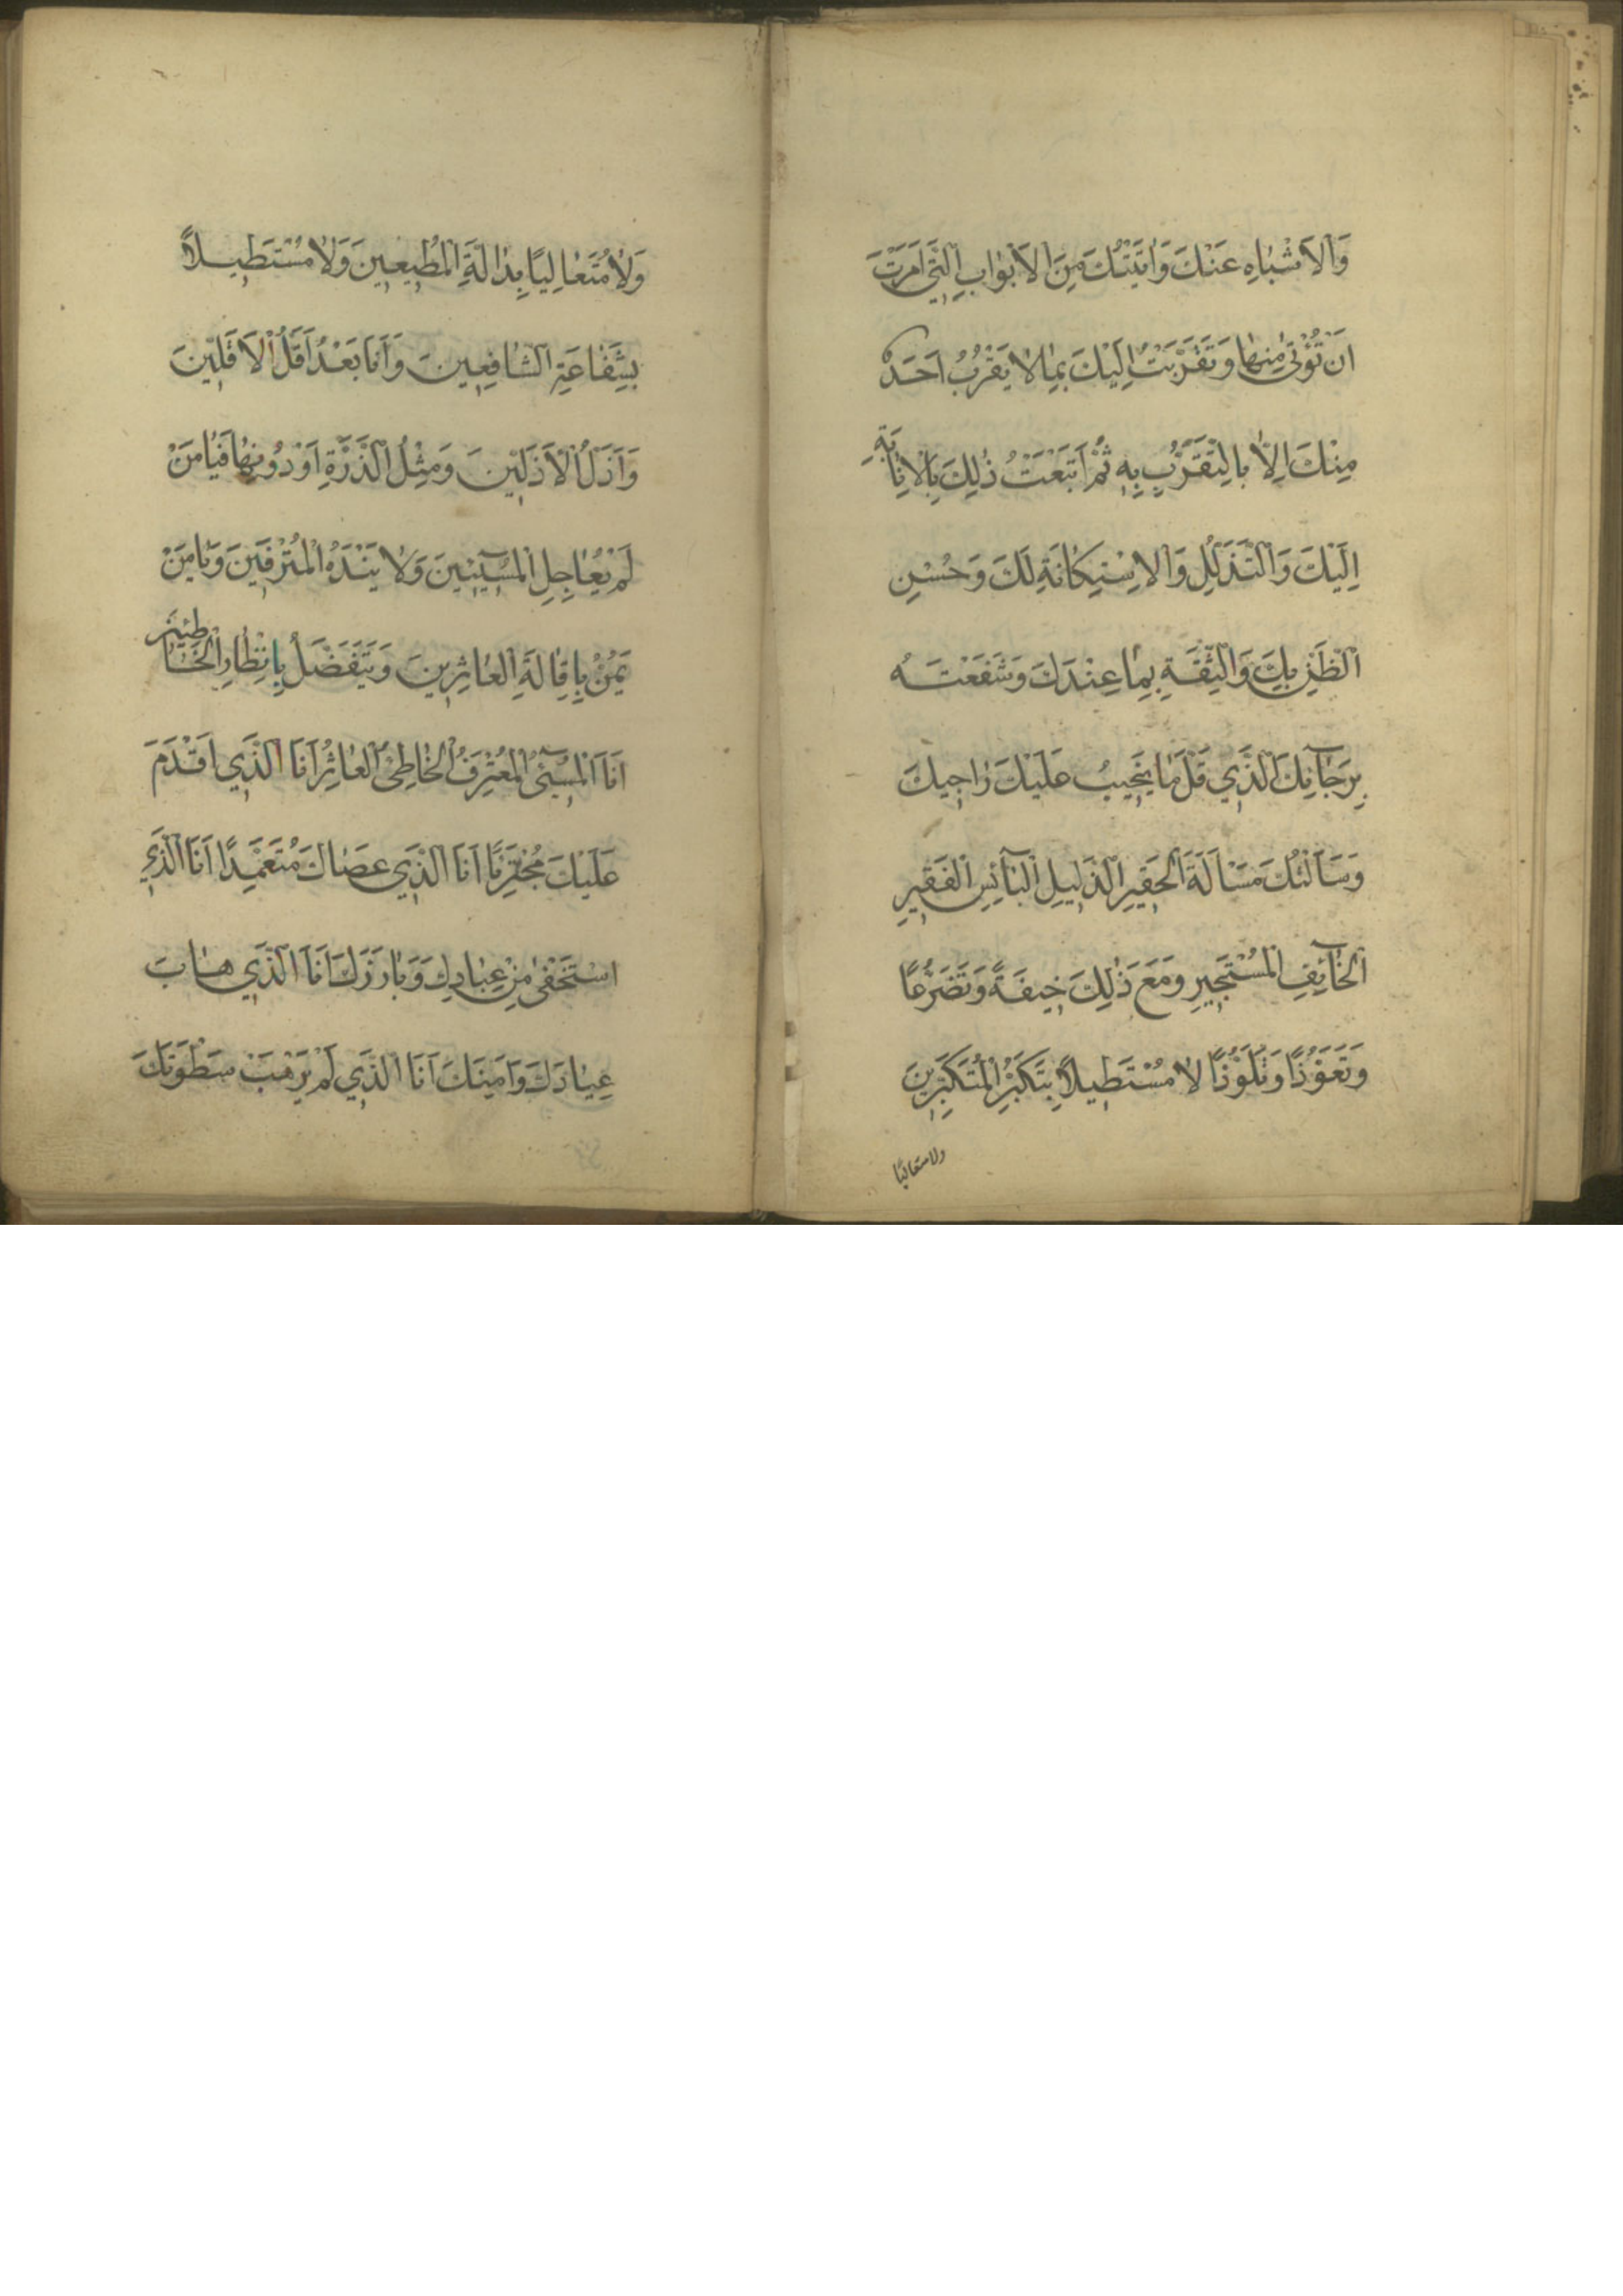 وَالْاَشْبٰاهِ عَنْكَ وَاَتَيْتُكَ مِنَ الْاَبْوٰابِ الَّتٖي اَمَرْتَ
اَنْ تُؤْتٰى مِنْهٰا وَتَقَرَّبْتُ اِلَيْكَ بِمٰا لٰا يَقْرُبُ اَحَدٌ
مِنْكَ اِلّٰا بِالتَّقَرُّبِ بِهٖ ثُمَّ اَتْبَعْتُ ذٰلِكَ بِالْاِنٰابَةِ
اِلَيْكَ وَالتَّذَلُّلِ وَالْاِسْتِكٰانَةِ لَكَ وَحُسْنِ
الظَّنِّ بِكَ وَالثِّقَةِ بِمٰا عِنْدَكَ وَشَفَعْتَهُ
بِرَجٰآئِكَ الَّذٖي قَلَّ مٰا يَخٖيبُ عَلَيْكَ رٰاجٖيكَ
وَسَاَلْتُكَ مَسْاَلَةَ الْحَقٖيرِ الذَّلٖيلِ الْبٰآئِسِ الْفَقٖيرِ
الْخٰآئِفِ الْمُسْتَجٖيرِ وَمَعَ ذٰلِكَ خٖيفَةً وَتَضَرُّعًا
وَتَعَوُّذًا وَتَلَوُّذًا لٰا مُسْتَطٖيلًا بِتَكَبُّرِ الْمُتَكَبِّرٖينَ
ولا متعاليًا
وَلٰا مُتَعٰالِيًا بِدٰالَّةِ الْمُطٖيعٖينَ وَلٰا مُسْتَطٖيلًا
بِشَفٰاعَةِ الشّٰافِعٖينَ وَاَنَا بَعْدُ اَقَلُّ الْاَقَلّٖينَ
وَاَذَلُّ الْاَذَلّٖينَ وَمِثْلُ الذَّرَّةِ اَوْ دُونِهٰا فَيٰا مَنْ
لَمْ يُعٰاجِلِ الْمُسٖٓيئٖينَ وَلٰا يَنْدَهُ الْمُتْرَفٖينَ وَيٰا مَنْ
يَمُنُّ بِاِقٰالَةِ الْعٰاثِرٖينَ وَيَتَفَضَّلُ بِاِنْظٰارِ الْخٰاطِئٖينَ
اَنَا الْمُسٖٓيئُ الْمُعْتَرِفُ الْخٰاطِئُ الْعٰاثِرُ اَنَا الَّذٖي اَقْدَمَ
عَلَيْكَ مُجْتَرِئًا اَنَا الَّذٖي عَصٰاكَ مُتَعَمِّدًا اَنَا الَّذٖي
اسْتَخْفٰى مِنْ عِبٰادِكَ وَبٰارَزَكَ اَنَا الَّذٖي هٰابَ
عِبٰادَكَ وَاَمِنَكَ اَنَا الَّذٖي لَمْ يَرْهَبْ سَطْوَتَكَ